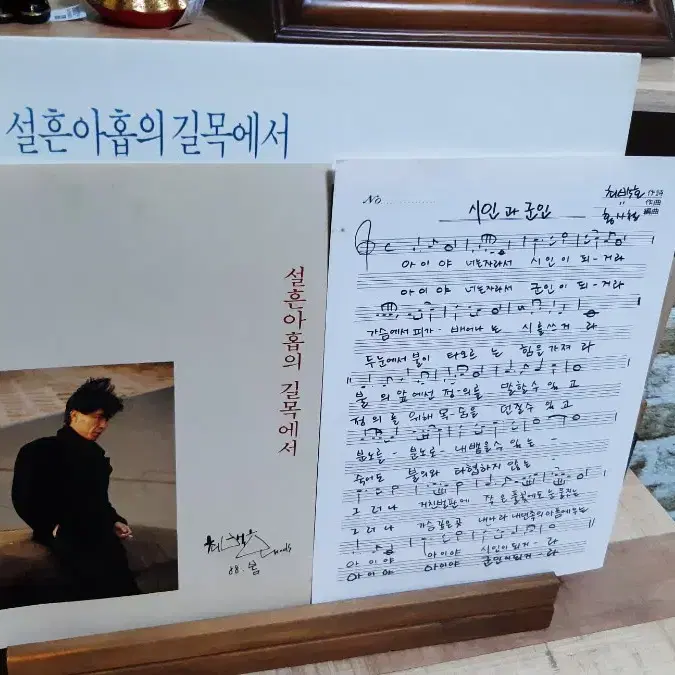 설흔아홉의 길목에서
설흔아홉의 길목에서
88. 봄
No
시인과 군인
作詩
作曲
編曲
아이야 너는 자라서 시인이 되-거라
아이야 너는 자라서 군인이 되-거라
가슴에서 피가- 배어나는 시를 쓰거라
두 눈에서 불이 타오르는 힘을 가져라
불의 앞에선 정의를 말할 수 있고
정의를 위해 목숨을 던질 수 있고
분노를- 분노로- 내뱉을 수 있는
죽어도 불의와 타협하지 않는
그러나 거친 벌판에 작은 풀꽃에도 눈물짓는
그러나 가슴 깊은 곳 내 나라 내 민족의 아픔에 우는
아이야 아이야 시인이 되거-라
아이야 아이야 군인이 되거-라